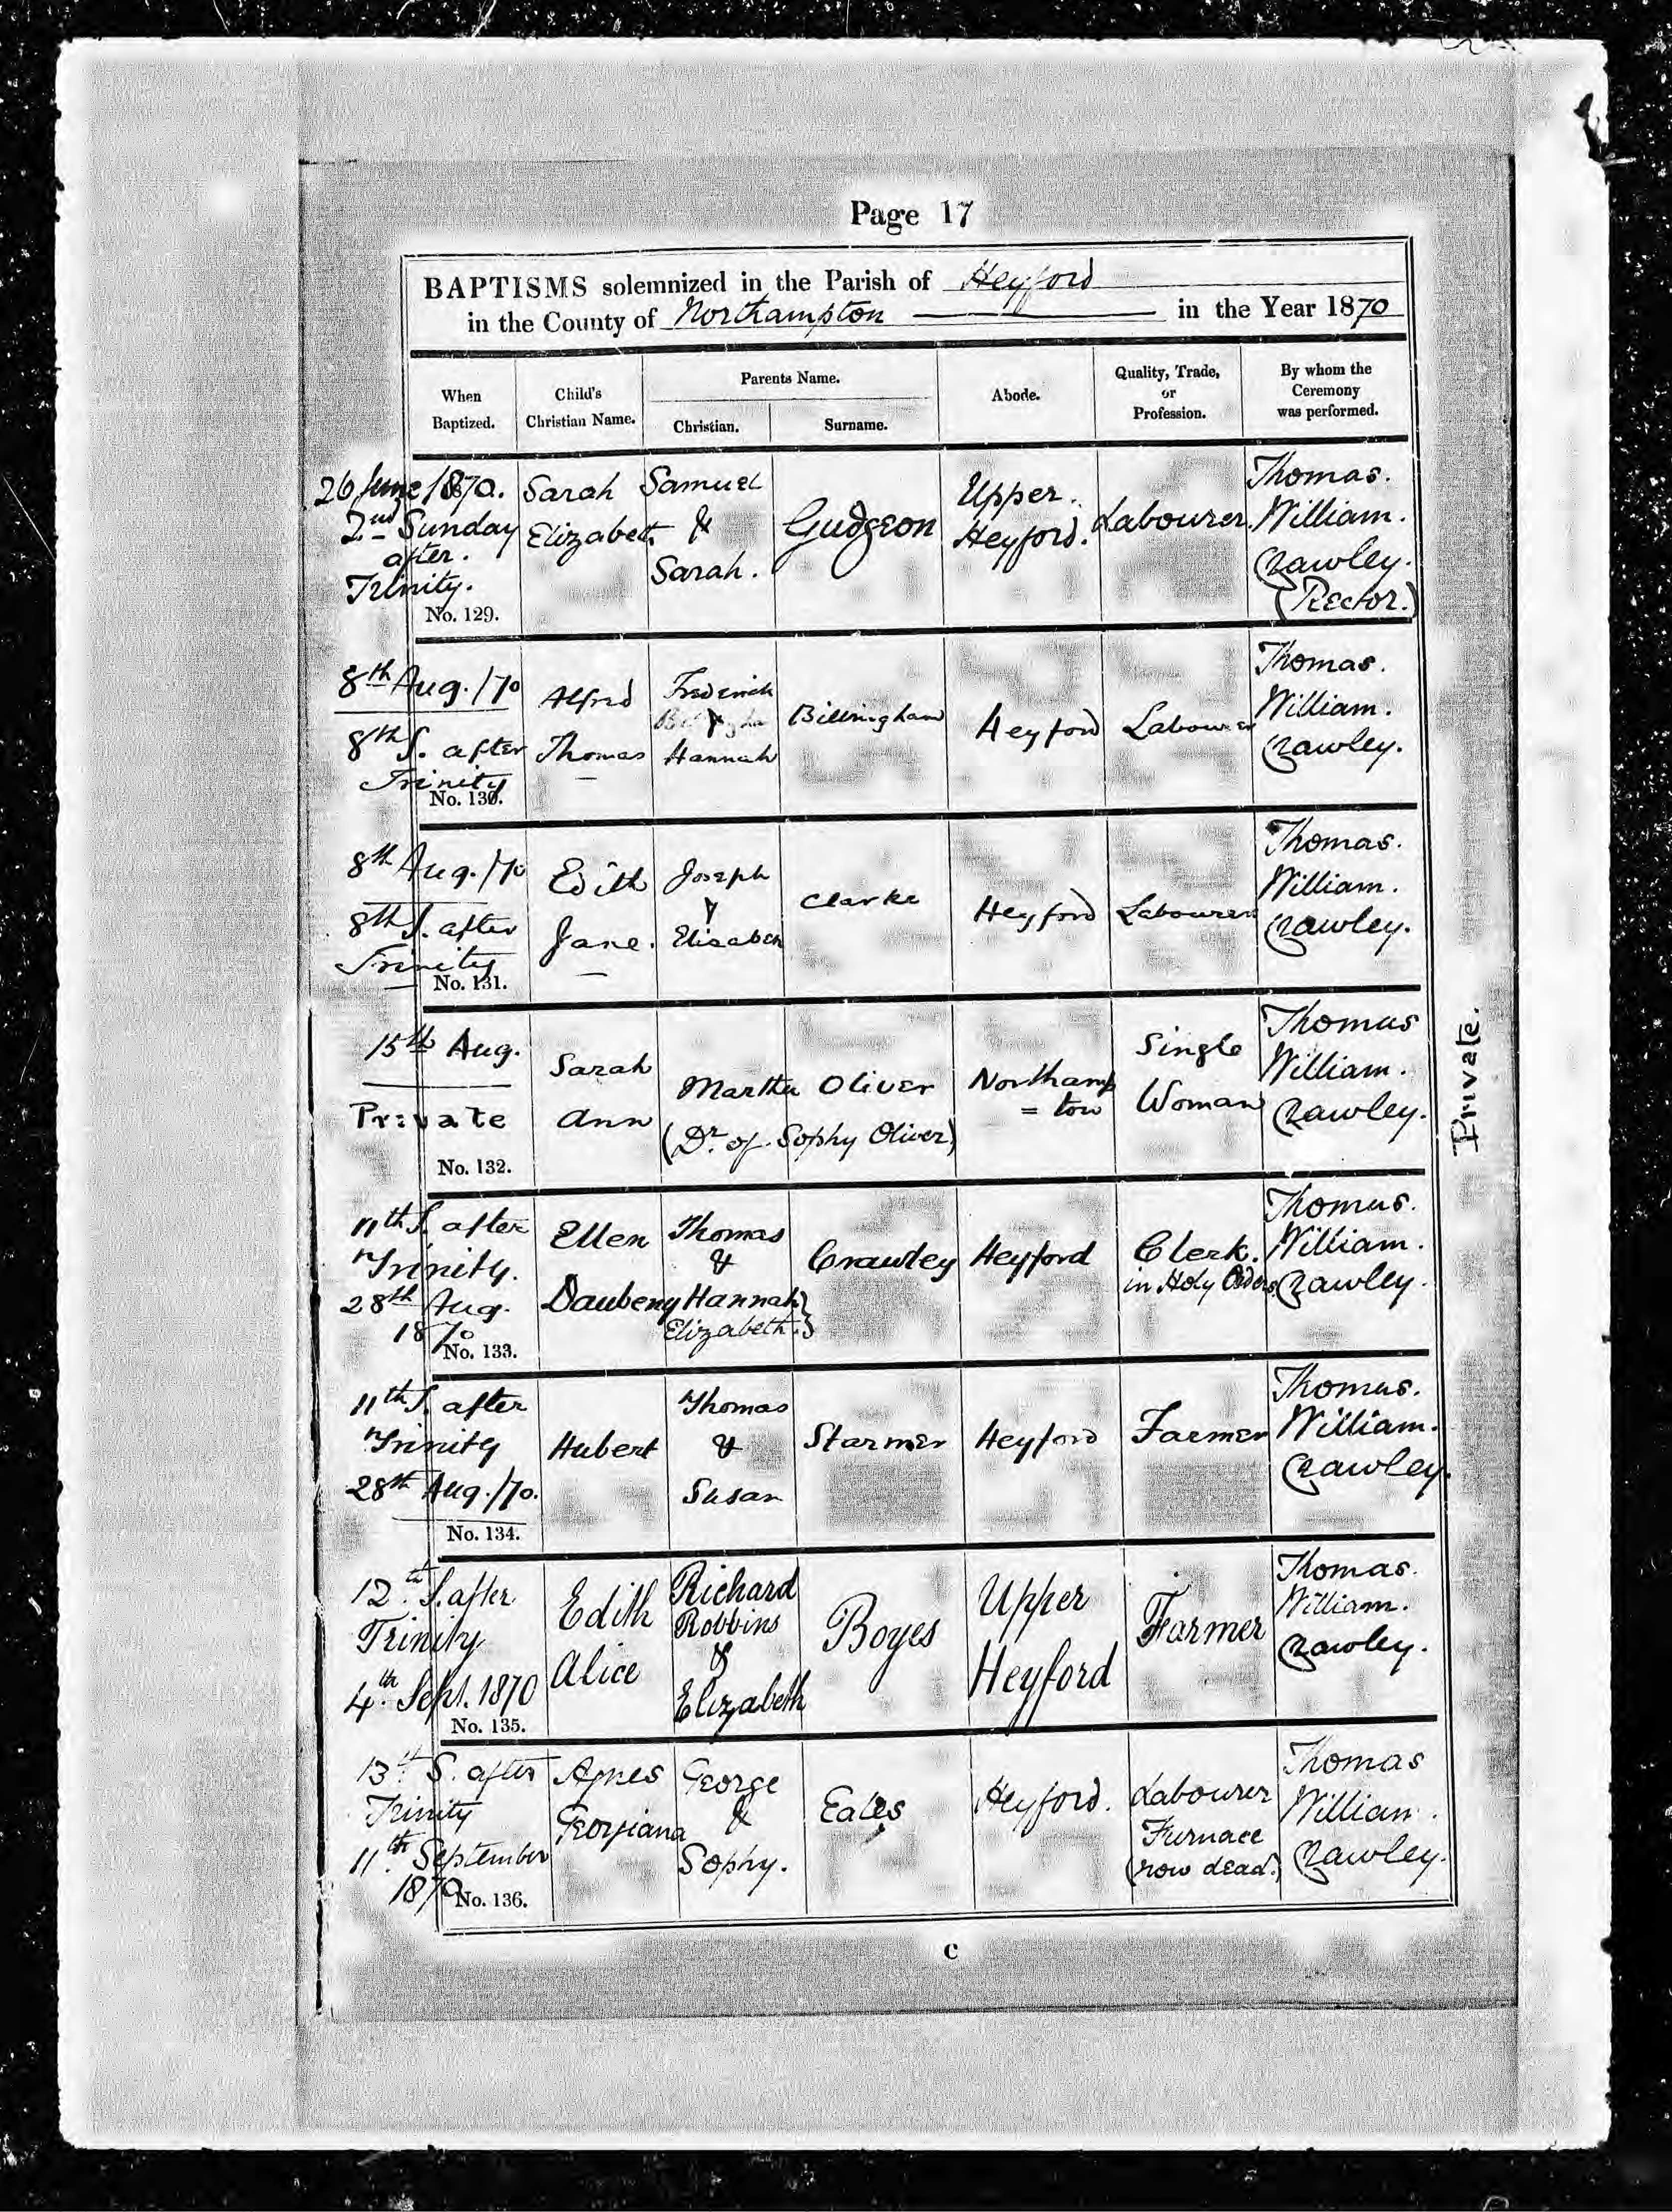 Page 17
BAPTISMS solemnized in the Parish of Heyford
in the County of Northampton in the Year 1870
When
Baptized.
Child's
Christian Name.
Parents Name.
Christian.
Surname.
Abode.
Quality, Trade,
or
Profession.
By whom the
Ceremony
was performed.
26 June 1870.
2nd Sunday
after.
Trinity.
No. 129.
Sarah
Elizabeth
Samuel
&
Sarah.
Gudgeon
Upper.
Heyford.
Labourer.
Thomas.
William.
Crawley.
(Rector.)
8th Aug./70
8th S. after
Trinity
No. 130.
Alfred
Thomas
Frederick
&
Hannah
Billingham
Heyford
Labourer
Thomas.
William.
Crawley.
8th Aug./70
8th S. after
Trinity
No. 131.
Edith
Jane.
Joseph
&
Elisabeth
Clarke
Heyford
Labourer
Thomas.
William.
Crawley.
15th Aug.
Private
No. 132.
Sarah
Ann
Martha Oliver
(Dr. of Sophy Oliver)
Northamp
= ton
Single
Woman
Thomas
William.
Crawley.
Private.
11th S. after
Trinity.
28th Aug.
1870
No. 133.
Ellen
Daubeny
Thomas
&
Hannah }
Elizabeth. }
Crawley
Heyford
Clerk.
in Holy Orders.
Thomas.
William.
Crawley.
11th S. after
Trinity
28th Aug./70.
No. 134.
Hubert
Thomas
&
Susan
Starmer
Heyford
Farmer
Thomas.
William.
Crawley.
12th S. after
Trinity
4th Sept. 1870
No. 135.
Edith
Alice
Richard
Robbins
&
Elizabeth
Boyes
Upper
Heyford
Farmer
Thomas.
William.
Crawley.
13th S. after
Trinity
11th September
1870
No. 136.
Agnes
Georgiana
George
&
Sophy.
Eales
Heyford.
Labourer
Furnace
(now dead.)
Thomas
William.
Crawley.
C